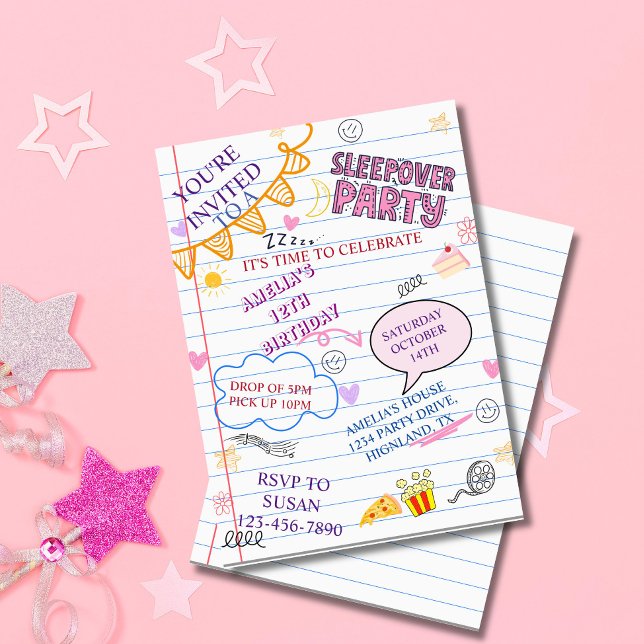 YOU'RE
INVITED
TO A
SLEEPOVER
PARTY
ZZzzz...
IT'S TIME TO CELEBRATE
AMELIA'S
12TH
BIRTHDAY
SATURDAY
OCTOBER
14TH
DROP OF 5PM
PICK UP 10PM
AMELIA'S HOUSE
1234 PARTY DRIVE,
HIGNLAND, TX
RSVP TO
SUSAN
123-456-7890